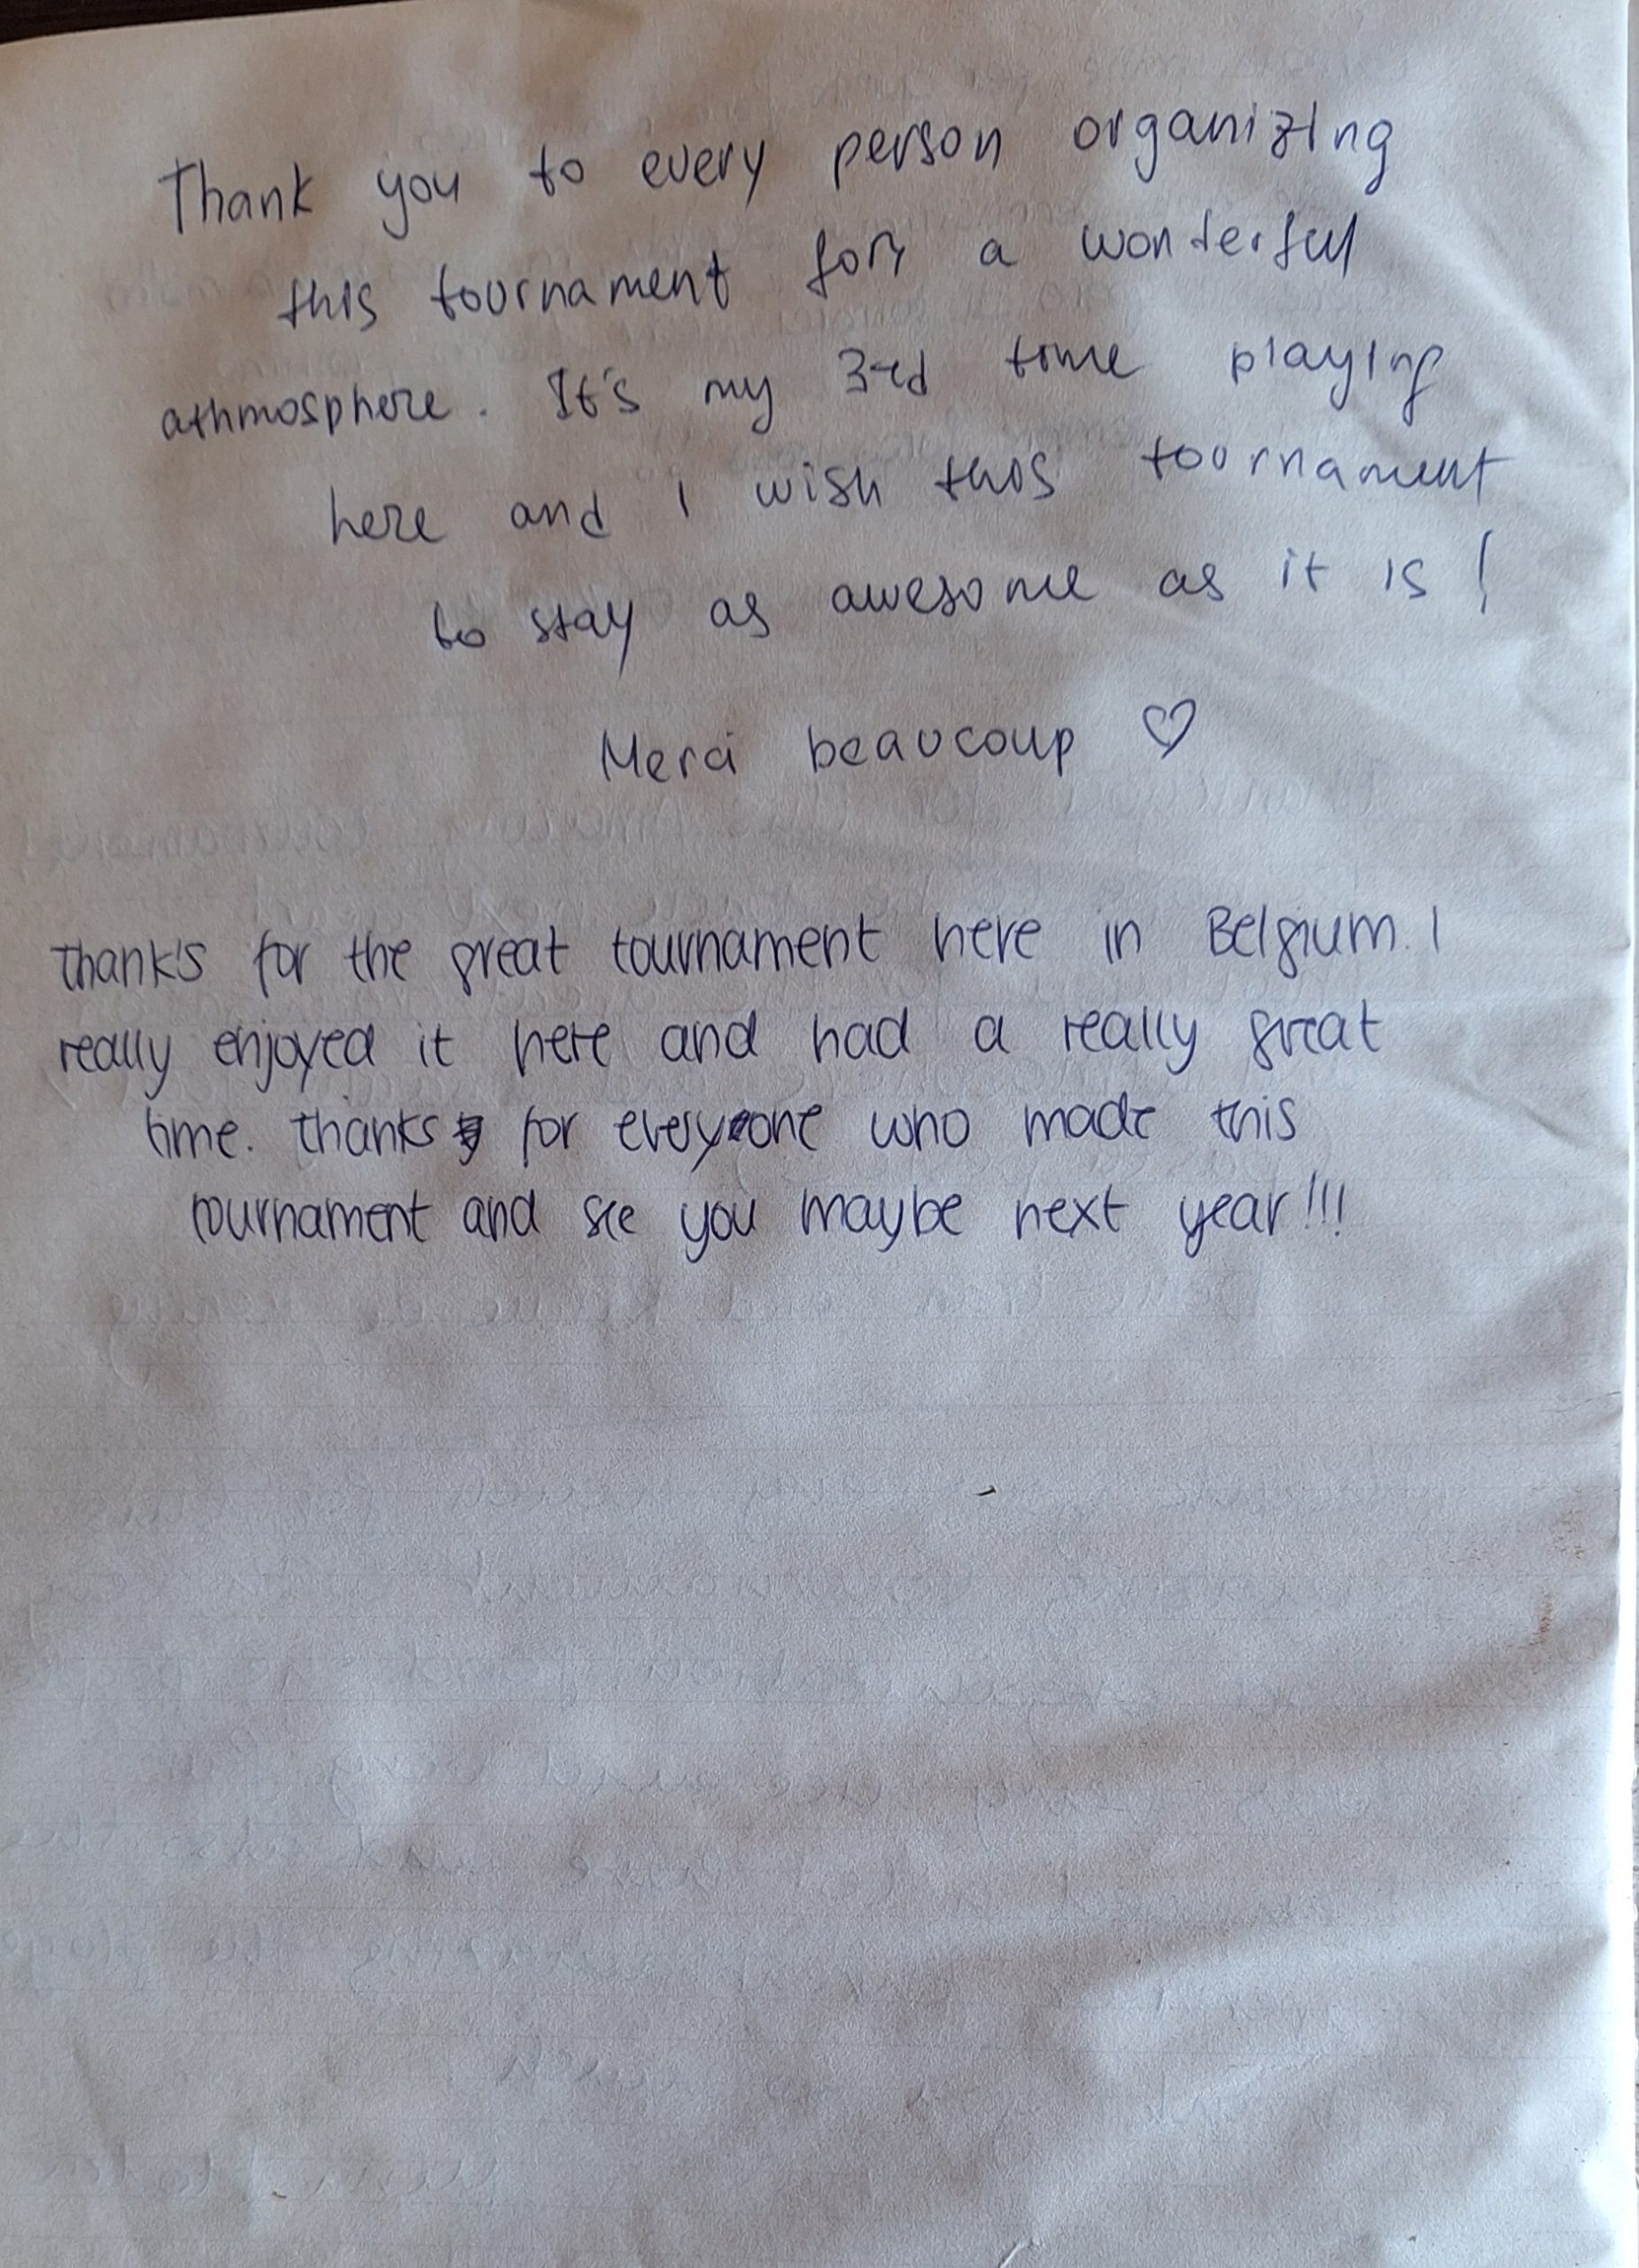 Thank you to every person organizing
this tournament for a wonderful
athmosphere. It's my 3rd time playing
here and I wish this tournament
to stay as awesome as it is!
Merci beaucoup ♡
Thank's for the great tournament here in Belgium. I
really enjoyed it here and had a really great
time. Thanks for everyone who made this
tournament and see you maybe next year!!!